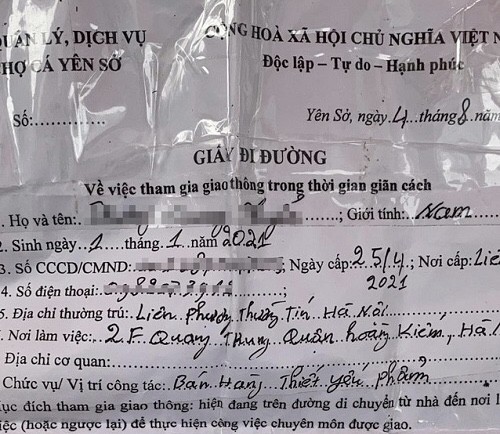 QUẢN LÝ, DỊCH VỤ
CỘNG HOÀ XÃ HỘI CHỦ NGHĨA VIỆT N
HỢ CÁ YÊN SỞ
Độc lập – Tự do – Hạnh phúc
Số:.............
Yên Sở, ngày 4 tháng 8 năm
GIẤY ĐI ĐƯỜNG
Về việc tham gia giao thông trong thời gian giãn cách
. Họ và tên: ; Giới tính: Nam
2. Sinh ngày 1 tháng 1 năm 2021
3. Số CCCD/CMND: ; Ngày cấp: 25/4 ; Nơi cấp: Liê
2021
4. Số điện thoại:
5. Địa chỉ thường trú: Liên Phương Thường Tín Hà Nội
. Nơi làm việc: 2.F. Quang Trung Quận hoàng Kiếm, Hà
Địa chỉ cơ quan:
Chức vụ/ Vị trí công tác: Bán Hàng Thiết yếu phẩm
ục đích tham gia giao thông: hiện đang trên đường di chuyển từ nhà đến nơi l
iệc (hoặc ngược lại) để thực hiện công việc chuyên môn được giao.